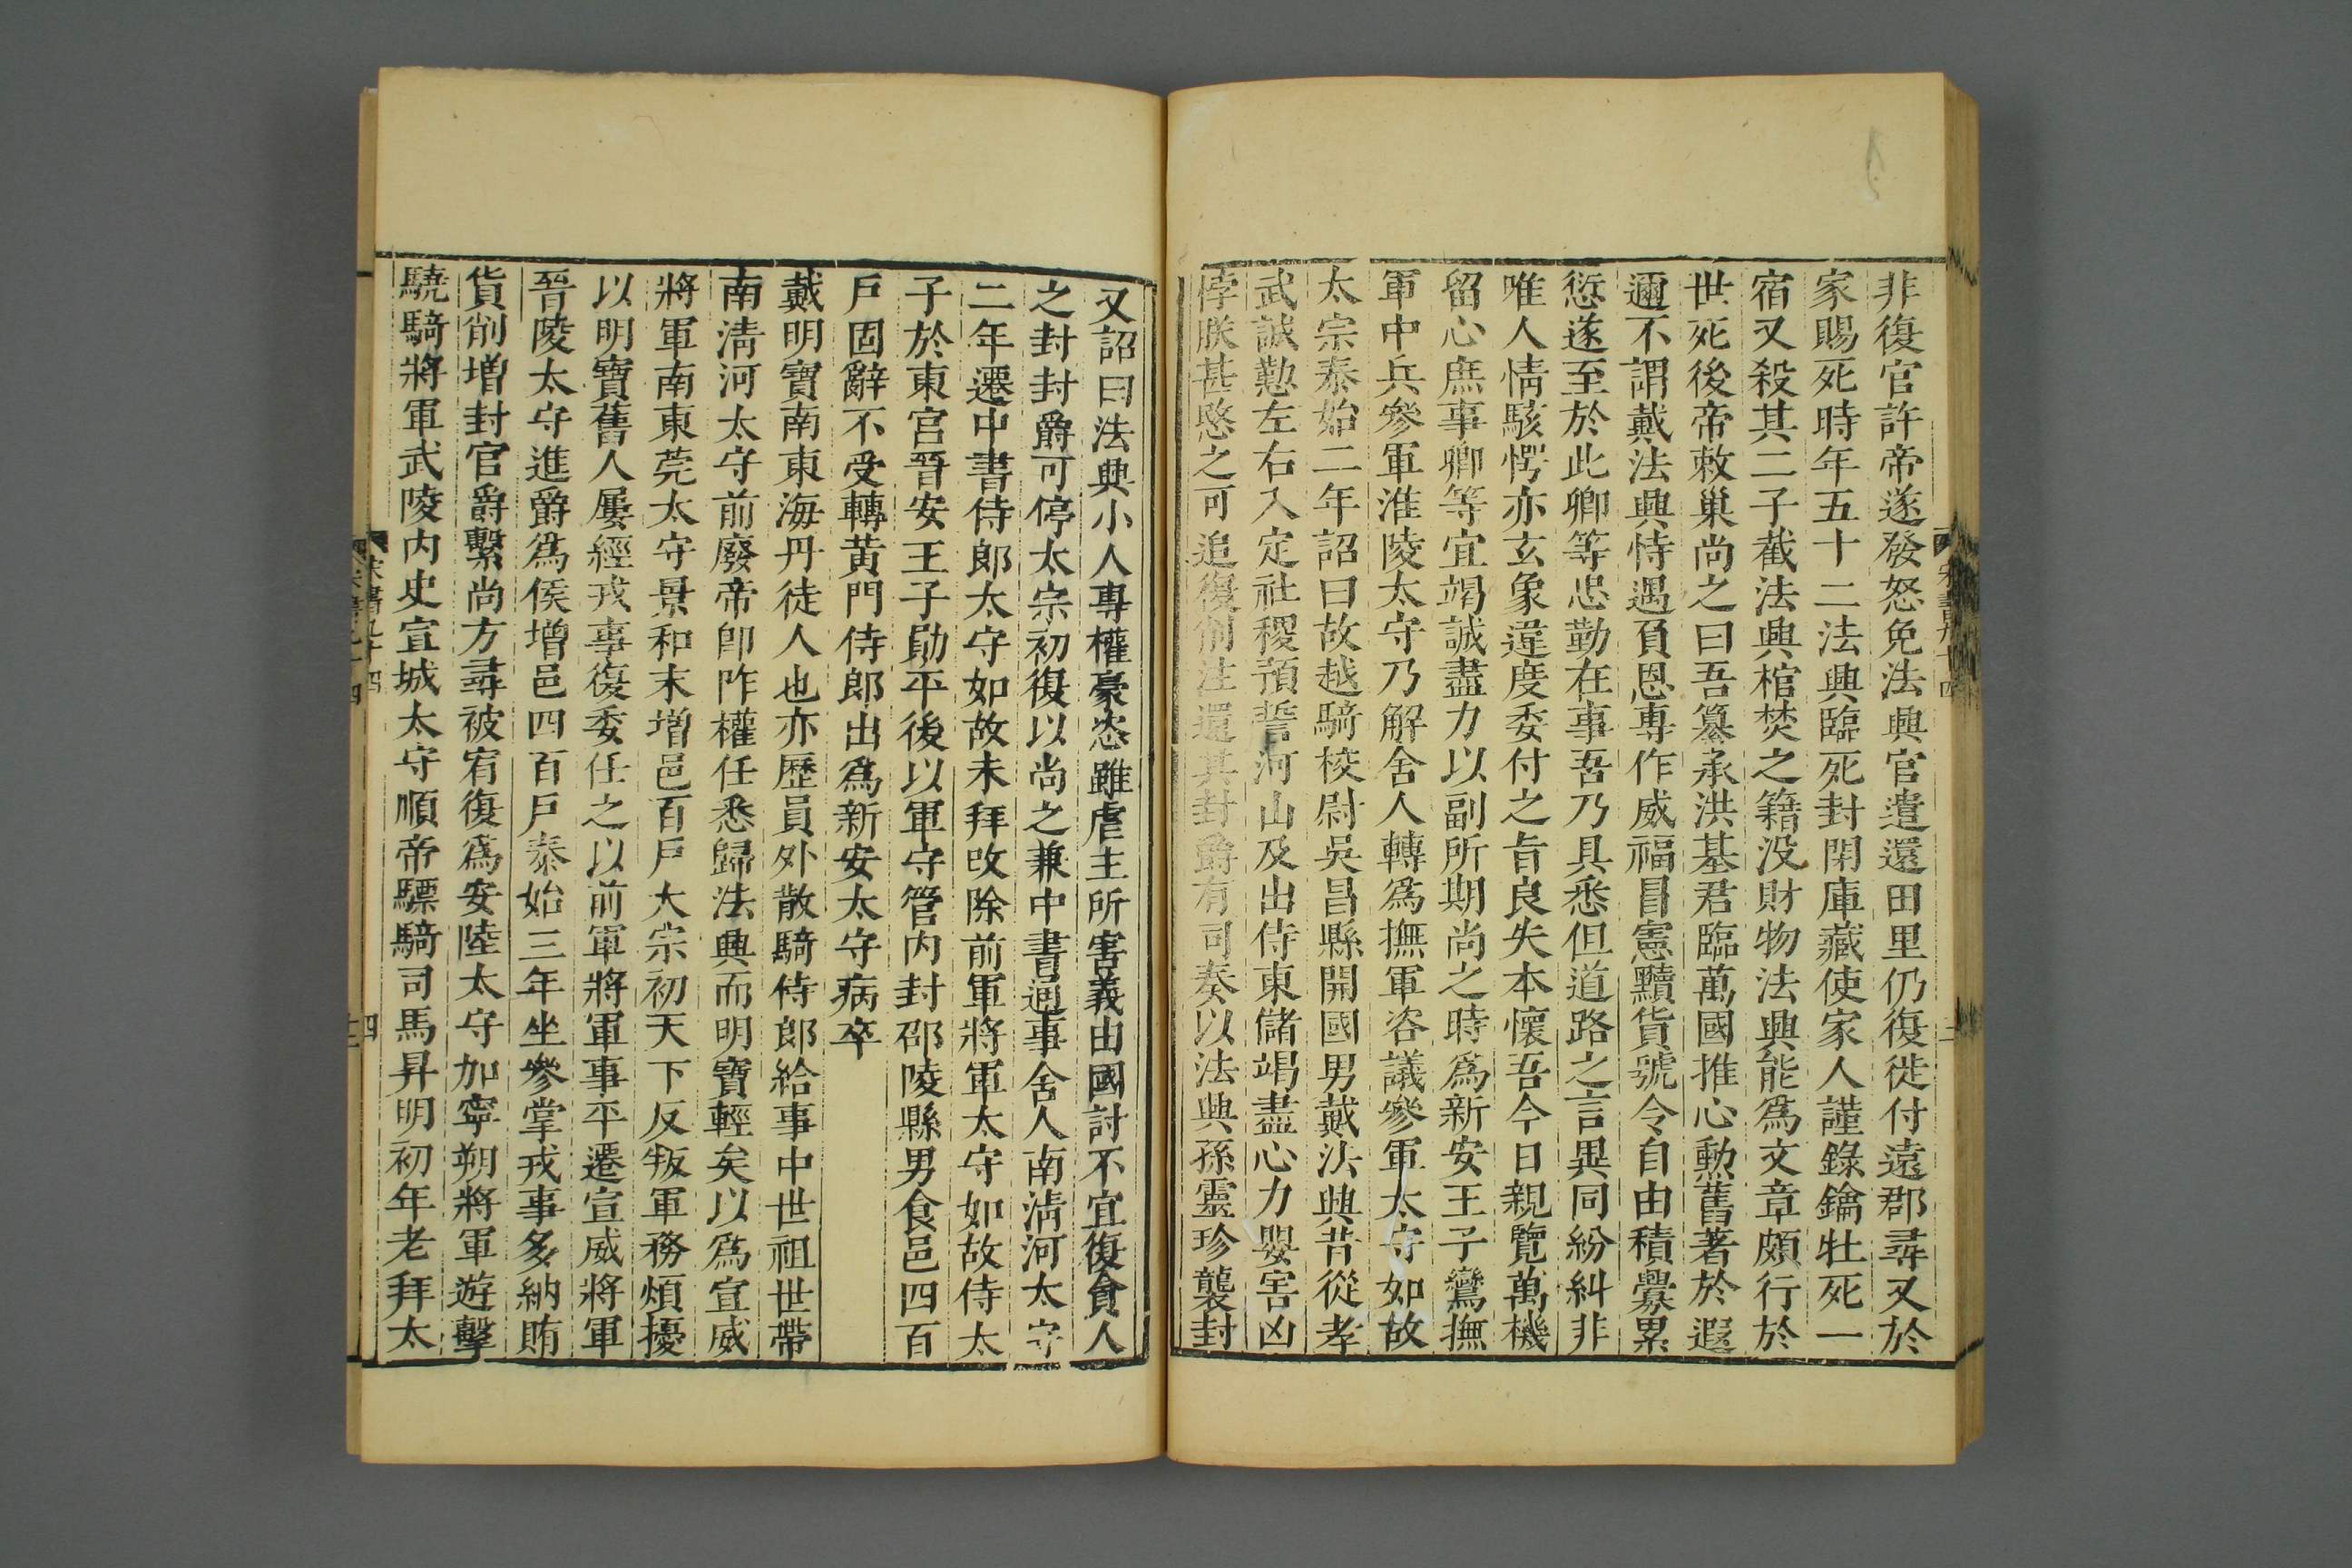 非復官許帝遂發怒免法興官遣還田里仍復徙付遠郡尋又於
家賜死時年五十二法興臨死封閉庫藏使家人謹錄鑰牡死一
宿又殺其二子截法興棺焚之籍没財物法興能爲文章頗行於
世死後帝敕巢尚之曰吾纂承洪基君臨萬國推心勲舊著於遐
邇不謂戴法興恃遇負恩專作威福冒憲黷貨號令自由積釁累
愆遂至於此卿等忠勤在事吾乃具悉但道路之言異同紛糾非
唯人情駭愕亦玄象違度委付之旨良失本懷吾今日親覽萬機
留心庶事卿等宜竭誠盡力以副所期尚之時爲新安王子鸞撫
軍中兵參軍淮陵太守乃解舍人轉爲撫軍咨議參軍太守如故
太宗泰始二年詔曰故越騎校尉吳昌縣開國男戴法興昔從孝
武誠懃左右入定社稷預誓河山及出侍東儲竭盡心力嬰害凶
悖朕甚愍之可追復削注還其封爵有司奏以法興孫靈珍襲封
又詔曰法興小人專權豪恣雖虐主所害義由國討不宜復貪人
之封封爵可停太宗初復以尚之兼中書通事舍人南淸河太守
二年遷中書侍郞太守如故未拜改除前軍將軍太守如故侍太
子於東宫晉安王子勛平後以軍守管内封邵陵縣男食邑四百
戶固辭不受轉黄門侍郞出爲新安太守病卒
戴明寶南東海丹徒人也亦歷員外散騎侍郞給事中世祖世帶
南淸河太守前廢帝卽阼權任悉歸法興而明寶輕矣以爲宣威
將軍南東莞太守景和末增邑百戶太宗初天下反叛軍務煩擾
以明寶舊人屢經戎事復委任之以前軍將軍事平遷宣威將軍
晉陵太守進爵爲侯增邑四百戶泰始三年坐參掌戎事多納賄
貨削増封官爵繫尚方尋被宥復爲安陸太守加寧朔將軍遊擊
驍騎將軍武陵内史宣城太守順帝驃騎司馬昇明初年老拜太
宋書九十四
四